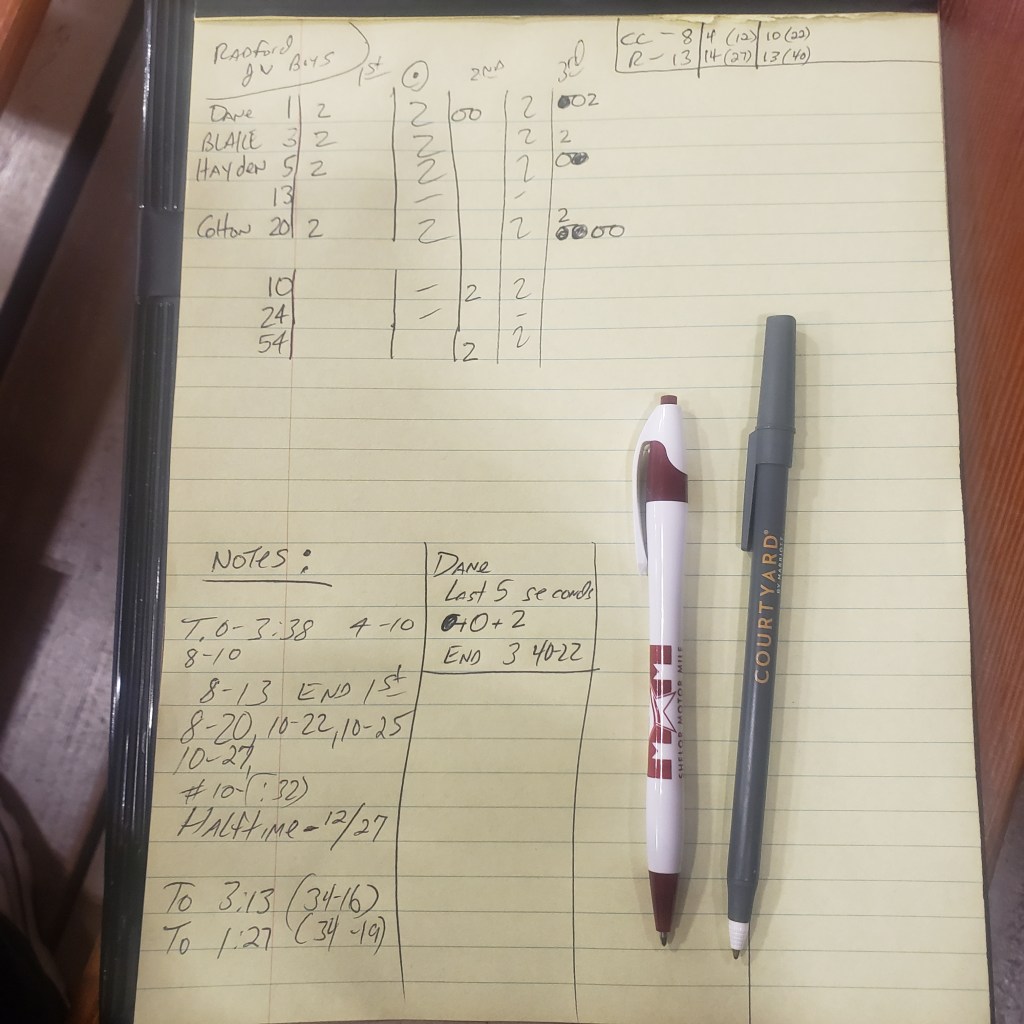 Radford
JV Boys
1st
2ND
3rd
CC - 8 4 (12) 10 (22)
R - 13 14 (27) 13 (40)
Dane 1 2 2 00 2 002
BLAKE 3 2 2 2 2
Hayden 5 2 2 2 00
13 - -
Colton 20 2 2 2 2
0000
10 - 2 2
24 - -
54 2 2
Notes:
T.O - 3:38 4-10
8-10
8-13 END 1st
8-20, 10-22, 10-25
10-27,
#10-(:32)
HALFtime - 12/27
To 3:13 (34-16)
To 1:27 (34-19)
Dane
Last 5 seconds
0+0+2
END 3 40-22
SHELOR MOTOR MILE
COURTYARD®
BY MARRIOTT